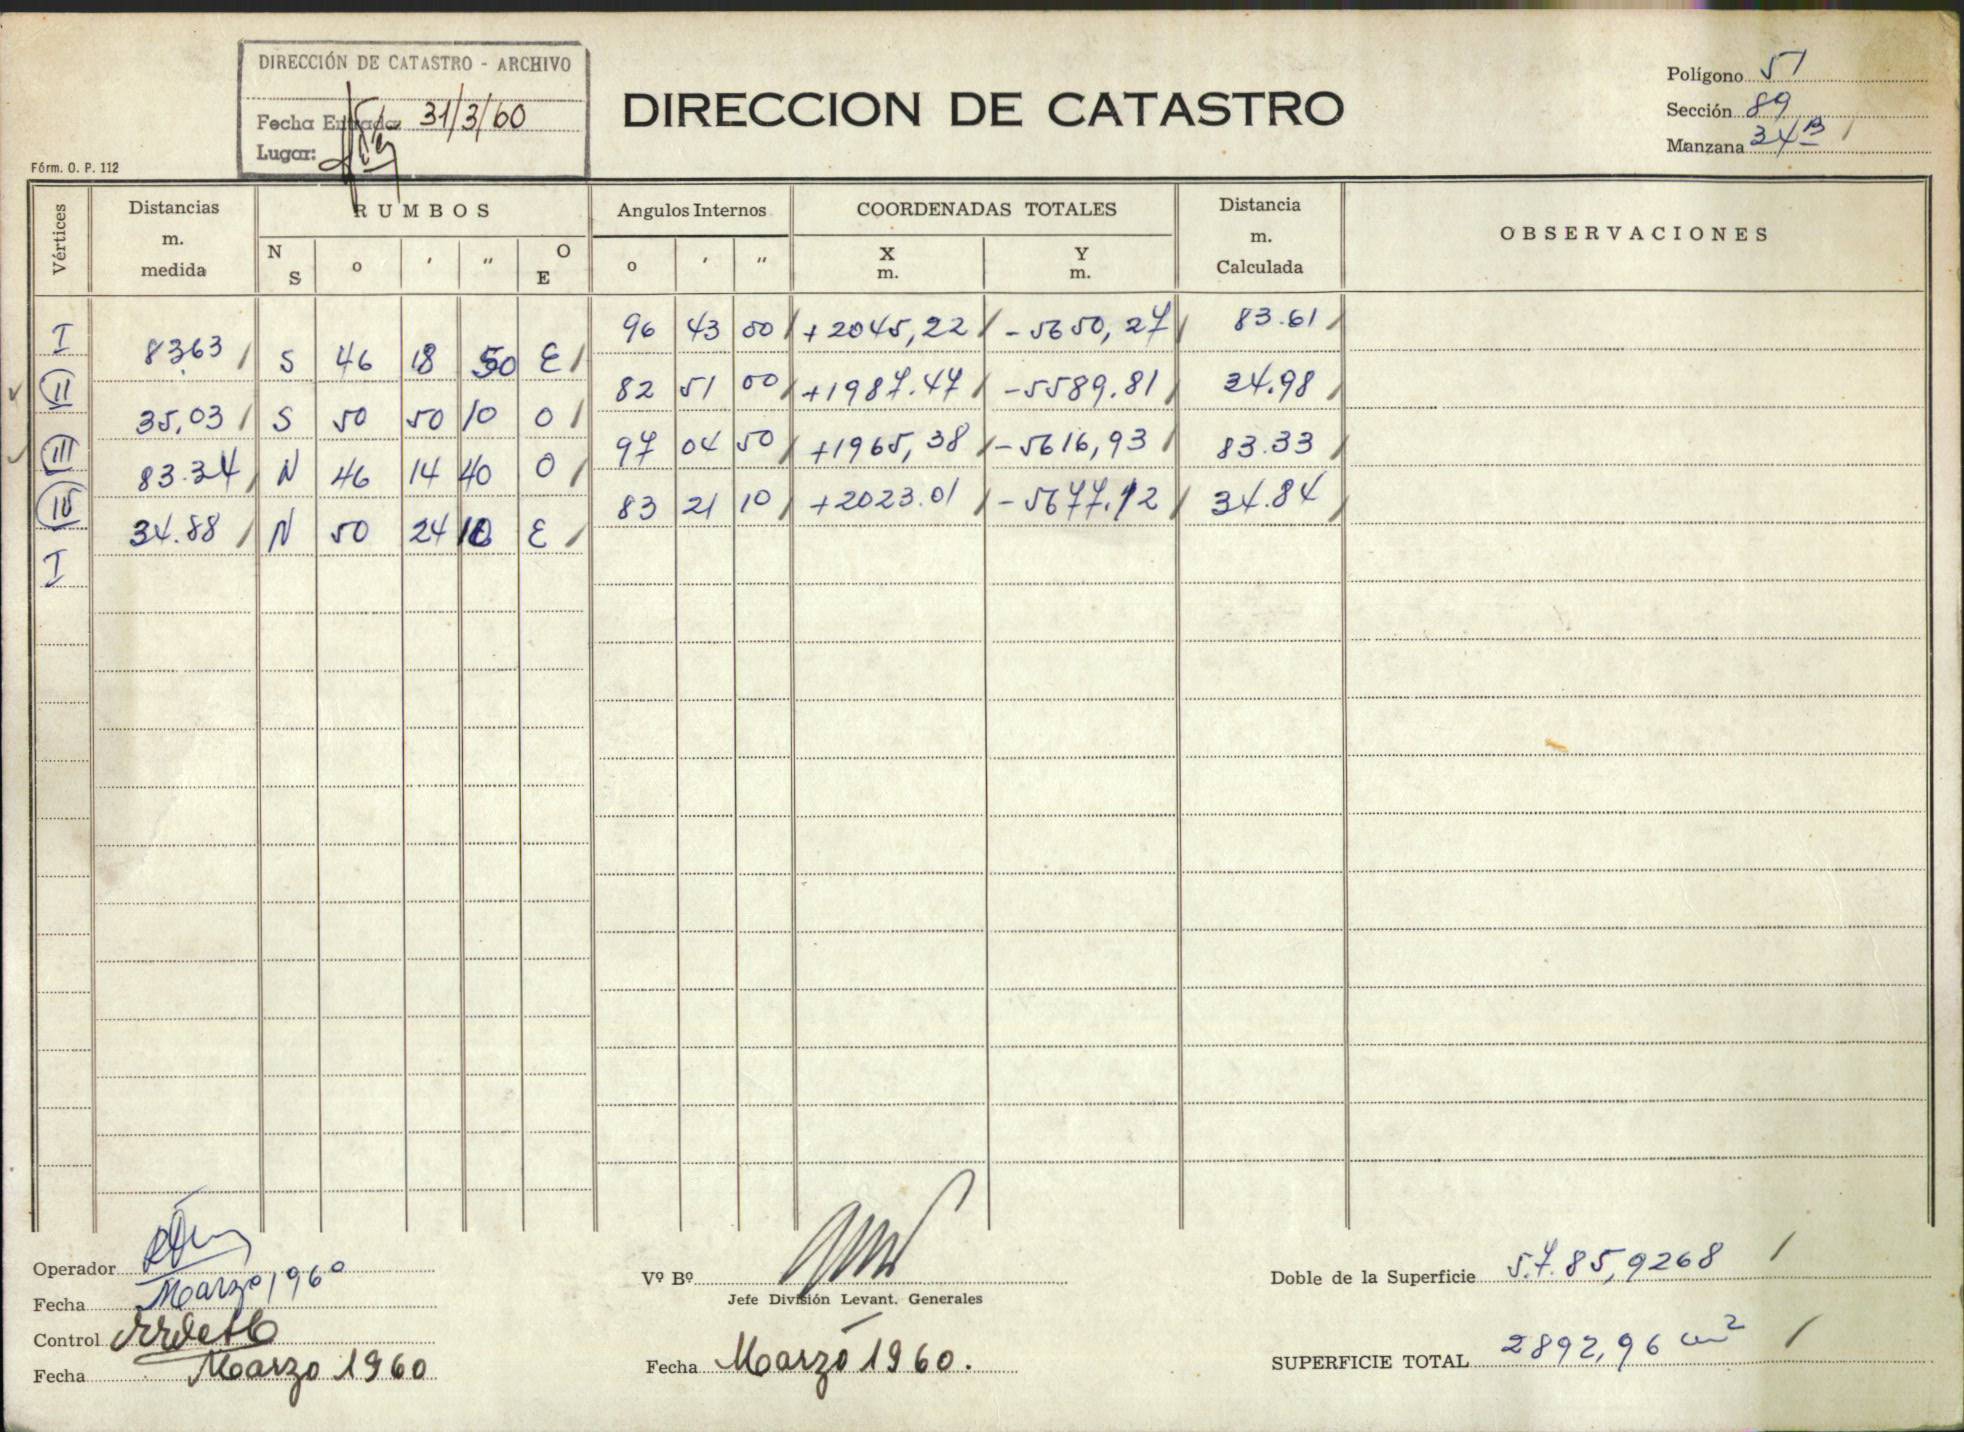 DIRECCIÓN DE CATASTRO - ARCHIVO
Fecha Entrada: 31/3/60
Lugar:
DIRECCION DE CATASTRO
Polígono 51
Sección 89
Manzana 34 B
Fórm. O. P. 112
Vértices
Distancias m. medida
RUMBOS
N S o ' " O E
Angulos Internos
o ' "
COORDENADAS TOTALES
X m. Y m.
Distancia m. Calculada
OBSERVACIONES
I 96 43 00 +2045,22 -5650,27 83.61
83.63 S 46 18 50 E
II 82 51 00 +1987.47 -5589.81 34.98
35,03 S 50 50 10 O
III 97 04 50 +1965,38 -5616,93 83.33
83.34 N 46 14 40 O
IV 83 21 10 +2023.01 -5677.12 34.84
34.88 N 50 24 10 E
I
Operador
Fecha Marzo 1960
Control
Fecha Marzo 1960
Vº Bº
Jefe División Levant. Generales
Fecha Marzo 1960.
Doble de la Superficie 5.7.85,9268
SUPERFICIE TOTAL 2892,96 m²